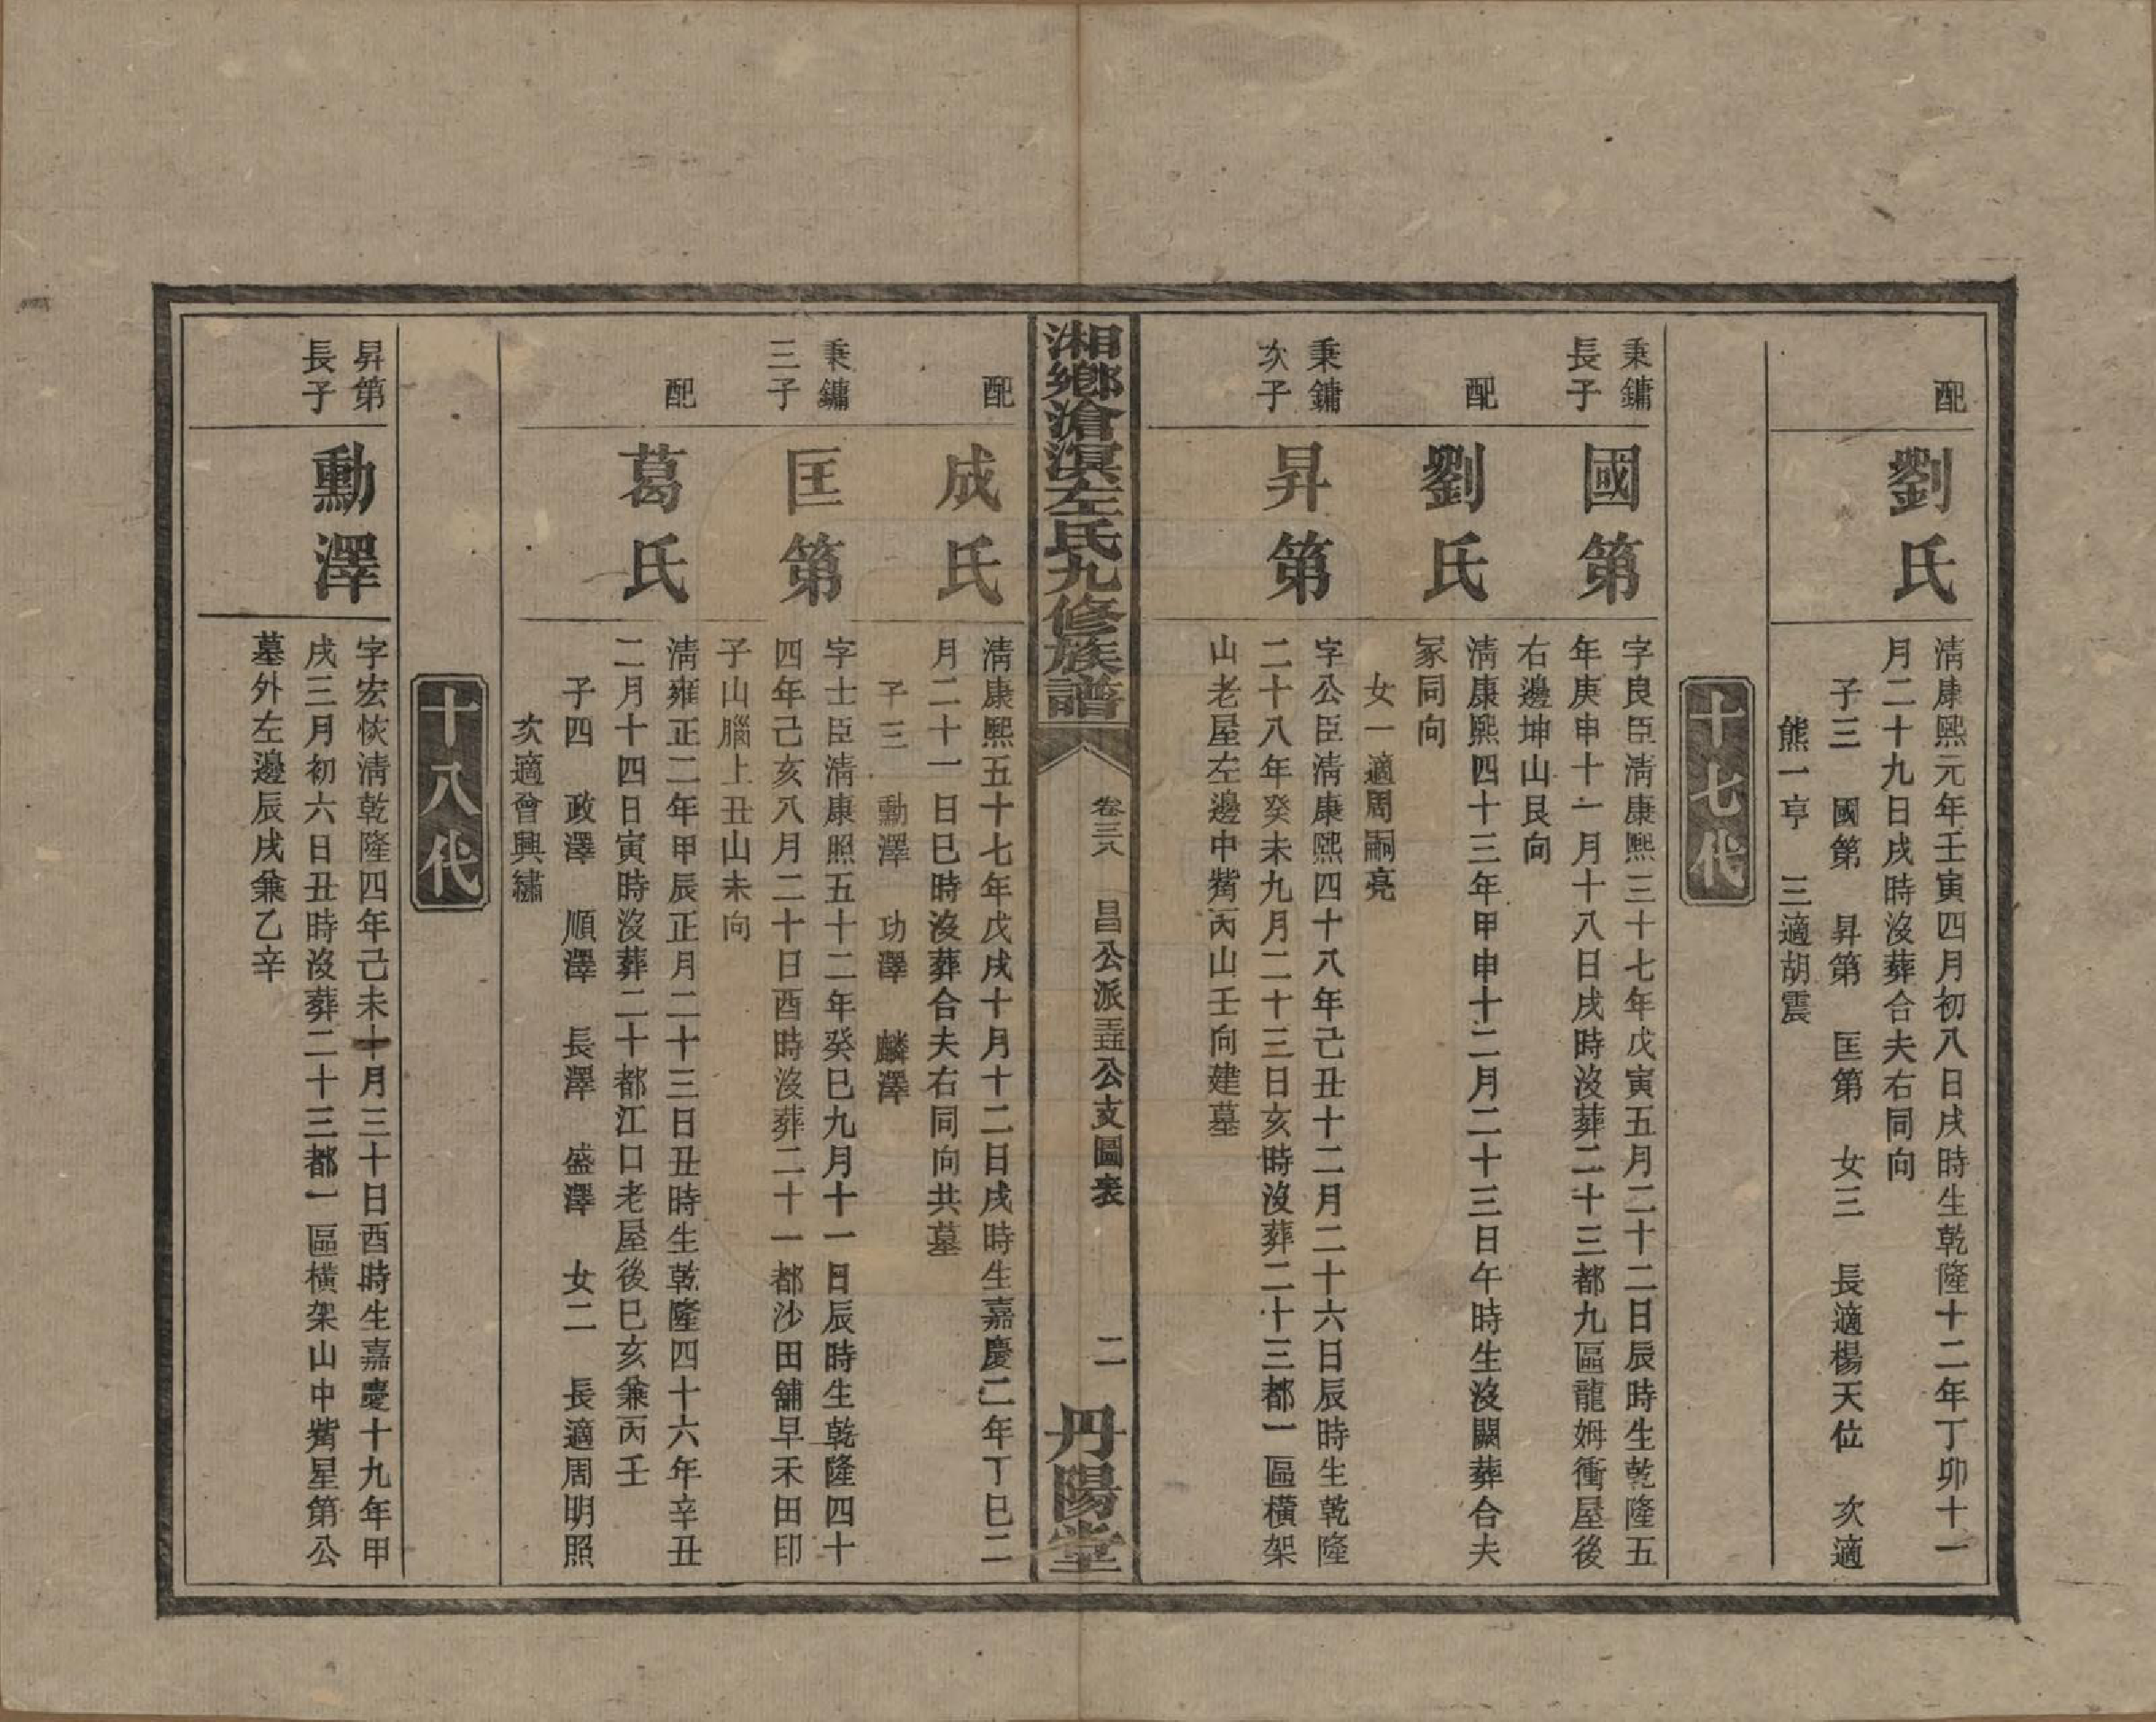 配
劉氏
清康熙元年壬寅四月初八日戌時生乾隆十二年丁卯十一
月二十九日戌時沒葬合夫右同向
子三　國第　昇第　匡第　女三　長適楊天位　次適
熊一亨　三適胡震
十七代
秉鏞
長子
國第
字良臣清康熙三十七年戊寅五月二十二日辰時生乾隆五
年庚申十一月十八日戌時沒葬二十三都九區龍姆衝屋後
右邊坤山艮向
配
劉氏
清康熙四十三年甲申十二月二十三日午時生沒闕葬合夫
冢同向
女一適周嗣亮
秉鏞
次子
昇第
字公臣清康熙四十八年己丑十二月二十六日辰時生乾隆
二十八年癸未九月二十三日亥時沒葬二十三都一區橫架
山老屋左邊中嘴丙山壬向建墓
湘鄉滄溟左氏九修族譜
卷三八
昌公派公支圖表
二
丹陽堂
配
成氏
清康熙五十七年戊戌十月十二日戌時生嘉慶二年丁巳二
月二十一日巳時沒葬合夫右同向共墓
子三　勳澤　功澤　麟澤
秉鏞
三子
匡第
字士臣清康熙五十二年癸巳九月十一日辰時生乾隆四十
四年己亥八月二十日酉時沒葬二十一都沙田舖早禾田印
子山腦上丑山未向
配
葛氏
清雍正二年甲辰正月二十三日丑時生乾隆四十六年辛丑
二月十四日寅時沒葬二十都江口老屋後巳亥兼丙壬
子四　政澤　順澤　長澤　盛澤　女二　長適周明照
次適曾興繡
十八代
昇第
長子
勳澤
字宏恢清乾隆四年己未十月三十日酉時生嘉慶十九年甲
戌三月初六日丑時沒葬二十三都一區橫架山中嘴星第公
墓外左邊辰戌兼乙辛